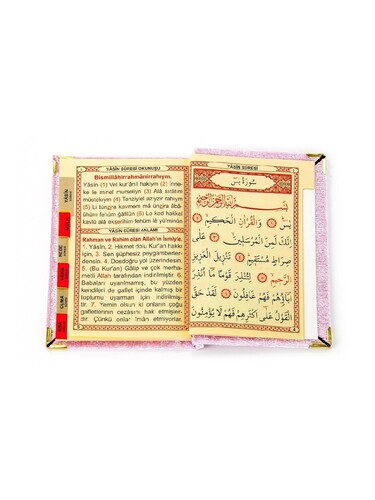 YÂSÎN SÛRESİ OKUNUŞU
Bismillâhirrahmânirrahıym.
Yâsîn (1) Vel kur'ânil hakiym (2) İnne-
ke le minel murseliyn (3) Alâ sırâtım
müstekıym (4) Tenziylel aziyzir rahıym
(5) Li tünzira kavmem mâ ünzira âbâ-
ühüm fehüm ğâfilûn (6) Le kad hakkal
kavlü alâ ekserihim fehüm lâ yü'minûn
YÂSÎN SÛRESİ ANLAMI
Rahman ve Rahim olan Allah'ın ismiyle.
1. Yâsîn, 2. Hikmet dolu Kur'an hakkı
için; 3. Sen şüphesiz peygamberler-
densin. 4. Dosdoğru yol üzerindesin.
5. (Bu Kur'an) Gâlip ve çok merha-
metli Allah tarafından indirilmiştir. 6.
Babaları uyarılmamış, bu yüzden
kendileri de gaflet içinde kalmış bir
toplumu uyarman için indirilmiş-
tir. 7. Yemin olsun ki onların çoğu
gafletlerinin cezâsını hak etmişler-
dir. Çünkü onlar îman etmiyorlar.
YÂSİN
CUMA
YÂSÎN SÛRESİ
سُورَةُ يٰسٓ
بِسْمِ اللّٰهِ الرَّحْمٰنِ الرَّحِيمِ
يٰسٓ ﴿١﴾ وَالْقُرْاٰنِ الْحَكِيمِ ﴿٢﴾
اِنَّكَ لَمِنَ الْمُرْسَلِينَ ﴿٣﴾ عَلٰى
صِرَاطٍ مُسْتَقِيمٍ ﴿٤﴾ تَنْزِيلَ الْعَزِيزِ
الرَّحِيمِ ﴿٥﴾ لِتُنْذِرَ قَوْمًا مَٓا اُنْذِرَ
اٰبَٓاؤُ۬هُمْ فَهُمْ غَافِلُونَ ﴿٦﴾ لَقَدْ حَقَّ
الْقَوْلُ عَلٰٓى اَكْثَرِهِمْ فَهُمْ لَا يُؤْمِنُونَ